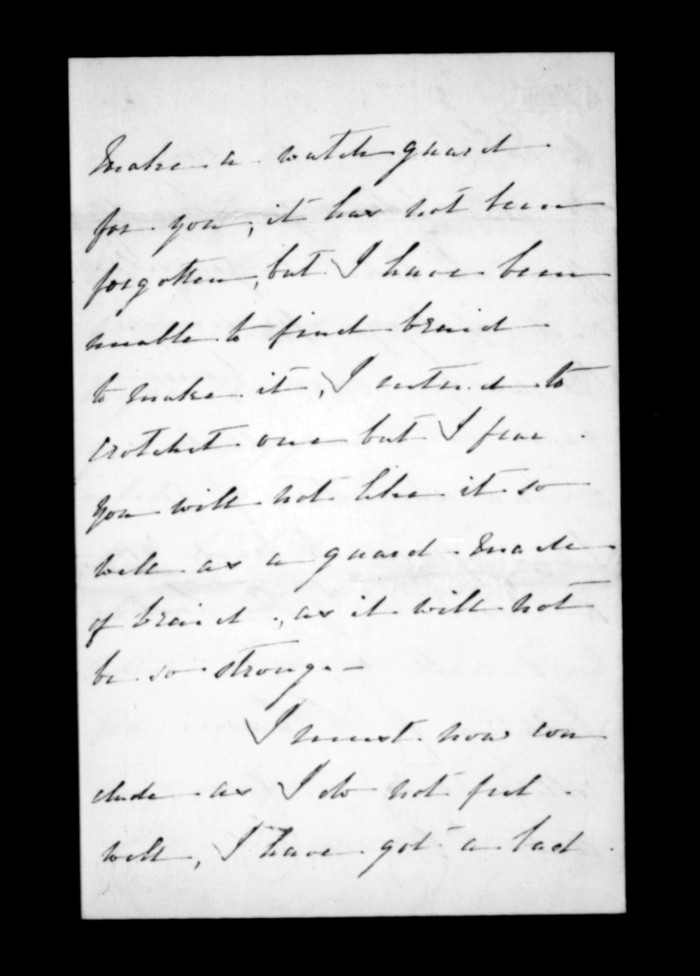 make a watch guard
for you, it has not been
forgotten, but I have been
unable to find braid
to make it, I intend to
crotchet one but I fear
you will not like it so
well as a guard made
of braid, as it will not
be so strong. —
I must now con
clude as I do not feel
well, I have got a bad